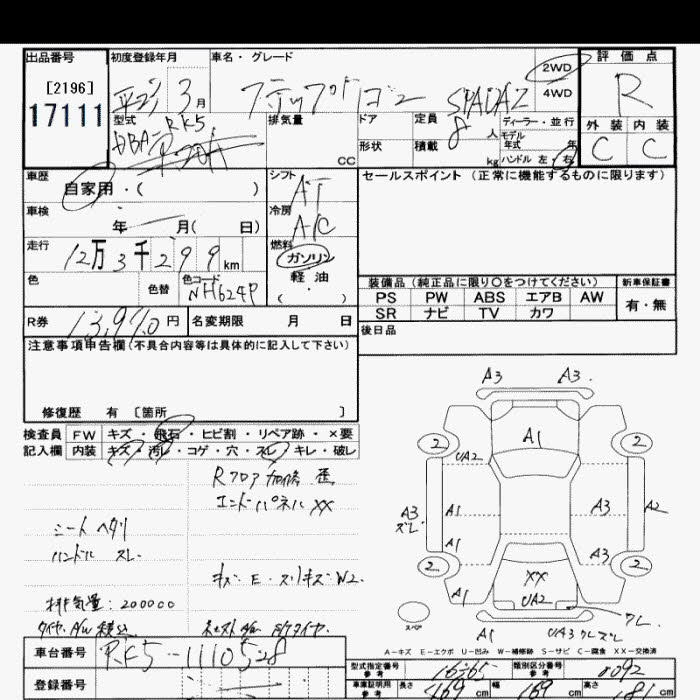 出品番号 初度登録年月 車名・グレード 評価点
[2196]
17111
3月 ステップワゴン SPADA Z 2WD 4WD R
型式 DBA- RK5 排気量 CC ドア 形状 定員 8人 積載 kg ディーラー・並行 モデル年式 年 ハンドル 左・右
外装 内装
C C
車歴 自家用・( ) シフト AT
セールスポイント(正常に機能するものに限ります)
車検 年 月( 日) 冷房 A/C
走行 12万3千299km 燃料 ガソリン 軽油 ・ ( )
色 色替 色コード NH624P
装備品(純正品に限り○をつけてください) 新車保証書
PS PW ABS エアB AW 有・無
SR ナビ TV カワ
R券 13,970円 名変期限 月 日 後日品
注意事項申告欄(不具合内容等は具体的に記入して下さい)
修復歴 有 [箇所 ]
検査員 FW キズ・飛石・ヒビ割・リペア跡・×要
記入欄 内装 キズ・汚レ・コゲ・穴・スレ・キレ・破レ
Rフロア 加修 歪
エンドパネル XX
シート ヘタリ
ハンドル スレ
キズ・E・スリキズ W2
排気量:200000
A3 A3
2 A1 2
UA2
A3 A1 A3 A2
ズレ
A1 A3
2 XX 2
A1 UA2
スペア
A1 UA3 ワレズレ ワレ
A-キズ E-エクボ U-凹み W-補修跡 S-サビ C-腐食 XX-交換済
車台番号 RK5-1110528
型式指定番号 参考 16365 類別区分番号 参考 0092
登録番号
車庫証明用 参考 長さ 469cm 幅 169cm 高さ 181cm